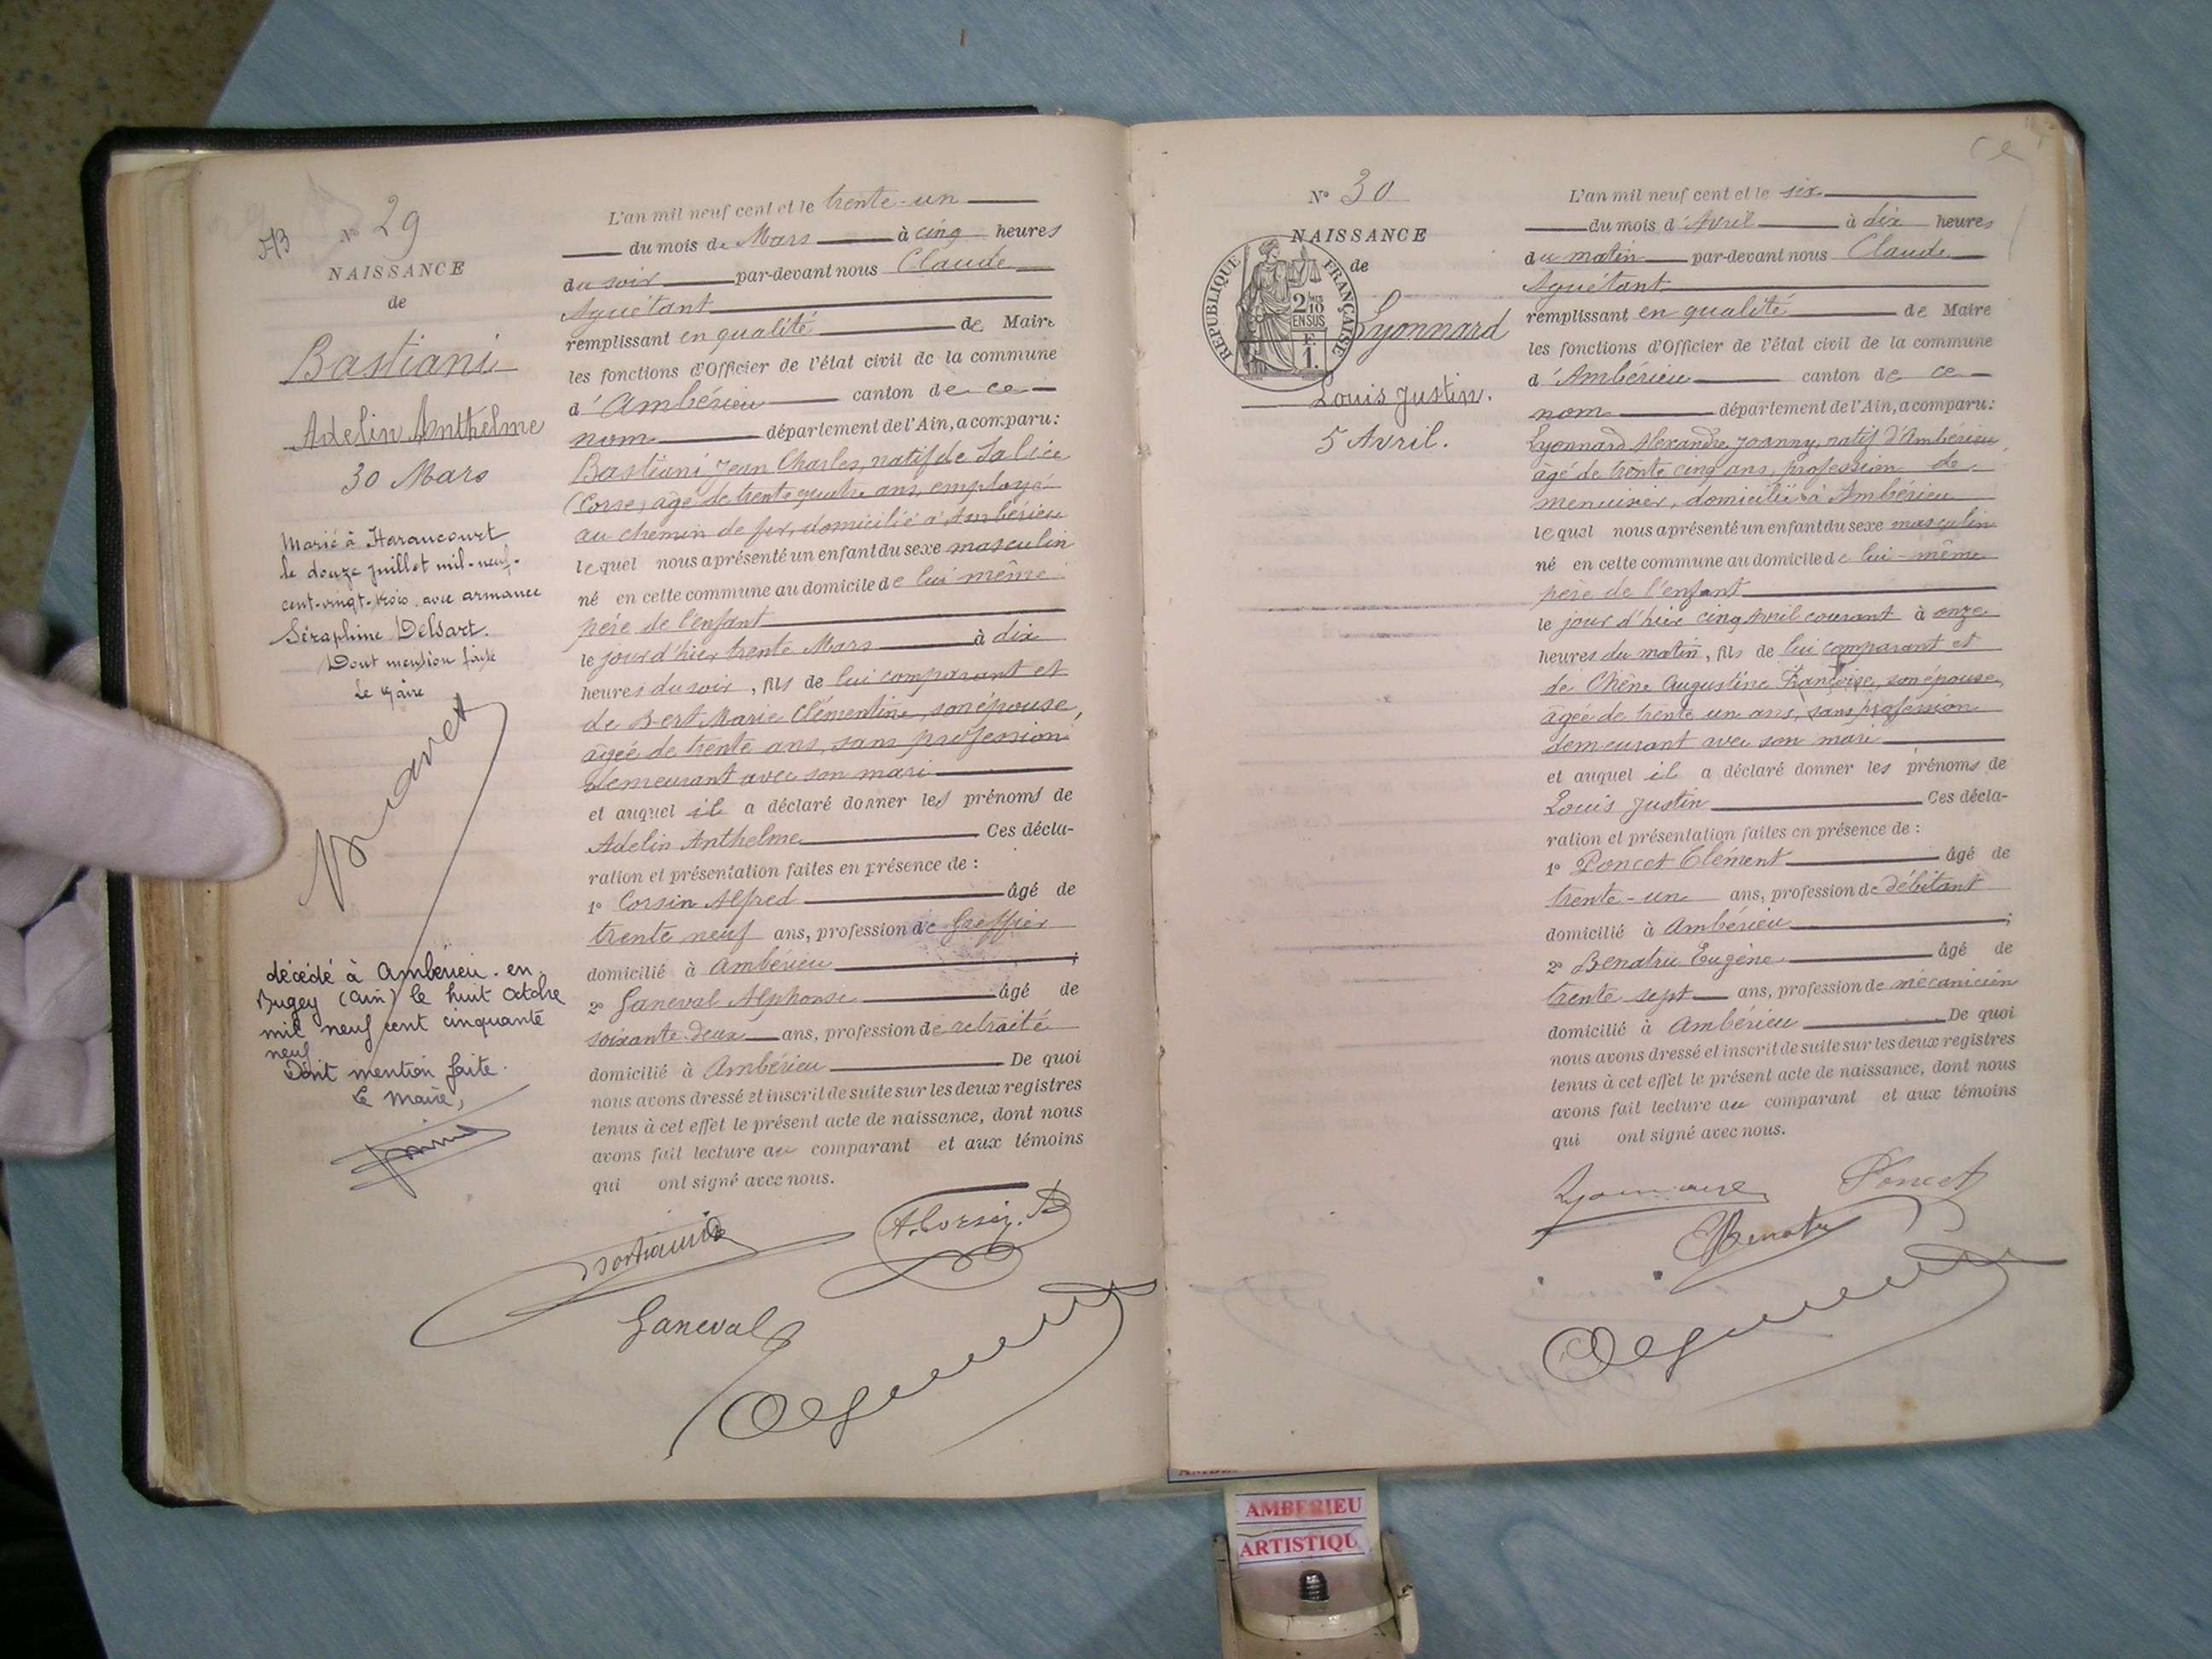 N° 29
NAISSANCE
de
Bastiani
Adelin Anthelme
30 Mars
Marié à Haraucourt
le douze juillet mil-neuf-
cent-vingt-trois avec armance
Séraphine Delsart.
Dont mention faite
Le Maire
décédé à Ambérieu-en-
Bugey (Ain) le huit octobre
mil neuf cent cinquante
neuf
Dont mention faite.
Le Maire,
L'an mil neuf cent et le trente-un
du mois de Mars à cinq heures
du soir par-devant nous Claude
Aguétant
remplissant en qualité de Maire
les fonctions d'Officier de l'état civil de la commune
d'Ambérieu canton de ce
nom département de l'Ain, a comparu:
Bastiani Jean Charles, natif de Salice
(Corse) âgé de trente quatre ans, employé
au chemin de fer, domicilié à Ambérieu
lequel nous a présenté un enfant du sexe masculin
né en cette commune au domicile de lui même
père de l'enfant
le jour d'hier trente Mars à dix
heures du soir, fils de lui comparant et
de Bert Marie Clémentine, son épouse,
âgée de trente ans, sans profession
demeurant avec son mari
et auquel il a déclaré donner les prénoms de
Adelin Anthelme Ces décla-
ration et présentation faites en présence de :
1° Corsin Alfred âgé de
trente neuf ans, profession de Greffier
domicilié à Ambérieu ;
2° Ganeval Alphonse âgé de
soixante deux ans, profession de retraité
domicilié à Ambérieu De quoi
nous avons dressé et inscrit de suite sur les deux registres
tenus à cet effet le présent acte de naissance, dont nous
avons fait lecture au comparant et aux témoins
qui ont signé avec nous.
Bastiani
A. Corsin
Ganeval
N° 30
NAISSANCE
de
RÉPUBLIQUE FRANÇAISE
2/10
EN SUS
F.
1.
Lyonnard
Louis Justin.
5 Avril.
L'an mil neuf cent et le six
du mois d'Avril à dix heures
du matin par-devant nous Claude
Aguétant
remplissant en qualité de Maire
les fonctions d'Officier de l'état civil de la commune
d'Ambérieu canton de ce
nom département de l'Ain, a comparu:
Lyonnard Alexandre Joanny, natif d'Ambérieu,
âgé de trente cinq ans, profession de
menuisier, domicilié à Ambérieu
lequel nous a présenté un enfant du sexe masculin
né en cette commune au domicile de lui-même
père de l'enfant
le jour d'hier cinq Avril courant à onze
heures du matin, fils de lui comparant et
de Chêne Augustine Françoise, son épouse,
âgée de trente un ans, sans profession
demeurant avec son mari
et auquel il a déclaré donner les prénoms de
Louis Justin Ces décla-
ration et présentation faites en présence de :
1° Poncet Clément âgé de
trente-un ans, profession de débitant
domicilié à Ambérieu ;
2° Benatru Eugène âgé de
trente sept ans, profession de mécanicien
domicilié à Ambérieu De quoi
nous avons dressé et inscrit de suite sur les deux registres
tenus à cet effet le présent acte de naissance, dont nous
avons fait lecture au comparant et aux témoins
qui ont signé avec nous.
Lyonnard Poncet
Benatru
AMBERIEU
ARTISTIQU